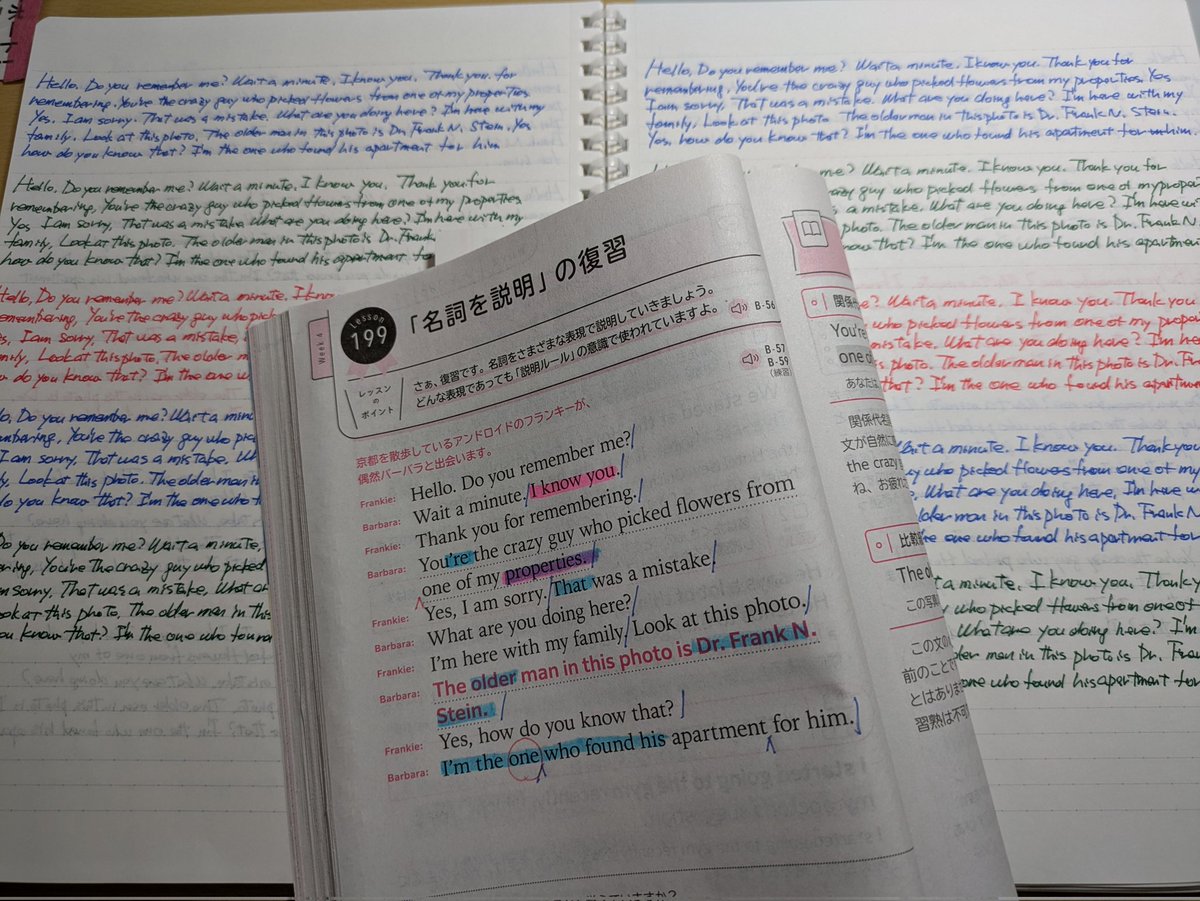 Hello. Do you remember me? Wait a minute. I know you. Thank you for
remembering. You're the crazy guy who picked flowers from one of my properties
Yes. I am sorry. That was a mistake. What are you doing here? I'm here with my
family. Look at this photo. The older man in this photo is Dr. Frank N. Stein. Yes
how do you know that? I'm the one who found his apartment for him
Hello. Do you remember me? Wait a minute, I know you. Thank you for
remembering, You're the crazy guy who picked flowers from one of my properties
Yes I am sorry, That was a mistake What are you doing here? I'm here with my
family, Look at this photo. The older man in this photo is Dr. Frank
how do you know that? I'm the one who found his apartment for
Hello, Do you remember me? Wait a minute. I know
remembering, You're the crazy guy who pick
am sorry, That was a mistake,
family, Look at this photo, The older m
do you know that? I'm the one w
Do you remember me? Wait a minu
remembering, You're the crazy guy who pic
I am sorry. That was a mistake, W
Look at this photo. The older man
do you know that? I'm the one who
Do you remember me? Wait a minute,
remembering, You're the crazy guy who picked
am sorry, That was a mistake, What a
Look at this photo. The older man in this
you know that? I'm the one who foun
Hello, Do you remember me? Wait a minute. I know you. Thank you for
remembering, You're the crazy guy who picked flowers from my properties. Yes
I am sorry, That was a mistake. What are you doing here? I'm here with my
family, Look at this photo The older man in this photo is Dr. Frank N. Stein.
Yes, how do you know that? I'm the one who found his apartment for him
me? Wait a minute. I know you. Thank you for
crazy guy who picked flowers from one of my properti
a mistake, What are you doing here, I'm here with
photo. The older man in this photo is Dr. Frank N.
know that? I'm the one who found his apartmen
me? Wait a minute, I know you. Thank you
who picked flowers from one of my proper
mistake, What are you doing here? I'm here
photo. The older man in this photo is Dr. Fr
that? I'm the one who found his apartmen
Wait a minute. I know you, Thank you
who picked flowers from one of my
What are you doing here, I'm here w
older man in this photo is Dr. Frank N
the one who found his apartmen
a minute, I know you, Thank y
who picked flowers from one of
What are you doing here? I'm
older man in this photo is Dr. Fran
one who found his apartment for
Week 4
Lesson
199
「名詞を説明」の復習
レッスン
の
ポイント
さぁ、復習です。名詞をさまざまな表現で説明していきましょう。
どんな表現であっても「説明ルール」の意識で使われていますよ。
B-56
B-57
B-59
(練習)
京都を散歩しているアンドロイドのフランキーが、
偶然バーバラと出会います。
Frankie: Hello. Do you remember me?
Barbara: Wait a minute. I know you.
Frankie: Thank you for remembering.
Barbara: You're the crazy guy who picked flowers from
one of my properties.
Frankie: Yes, I am sorry. That was a mistake
Barbara: What are you doing here?
Frankie: I'm here with my family. Look at this photo.
Barbara: The older man in this photo is Dr. Frank N.
Stein.
Frankie: Yes, how do you know that?
Barbara: I'm the one who found his apartment for him.
関係代
You're
one o
あなたは
関係代名
文が自然に
the crazy
ね、お疲れ
比較
The o
この写真
この文の
前のことで
とはありま
習熟は不可